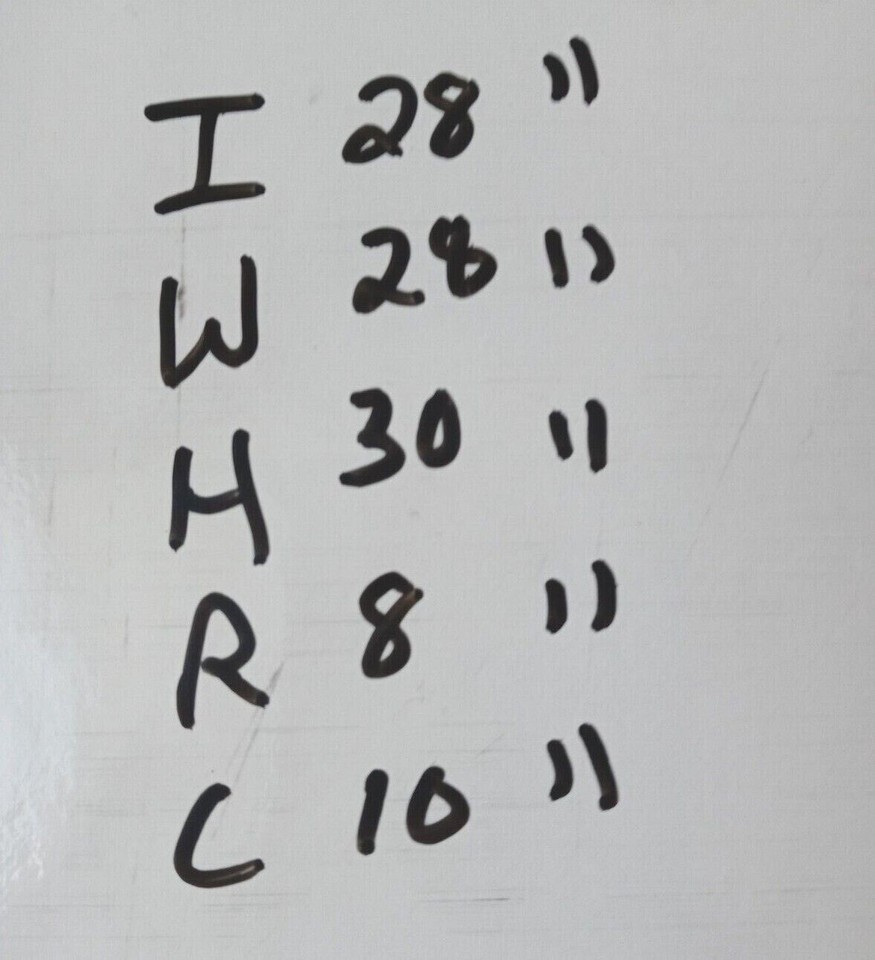 I 28 "
W 28 "
H 30 "
R 8 "
C 10 "